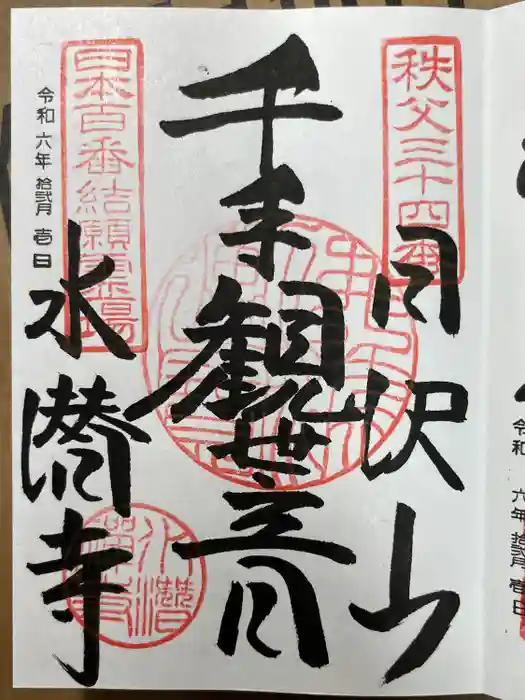 秩父三十四番
日沢山
千手観世音
日本百番結願霊場
水潜寺
令和 六年 拾弐月 壱日
令和 六年 拾弐月 壱日